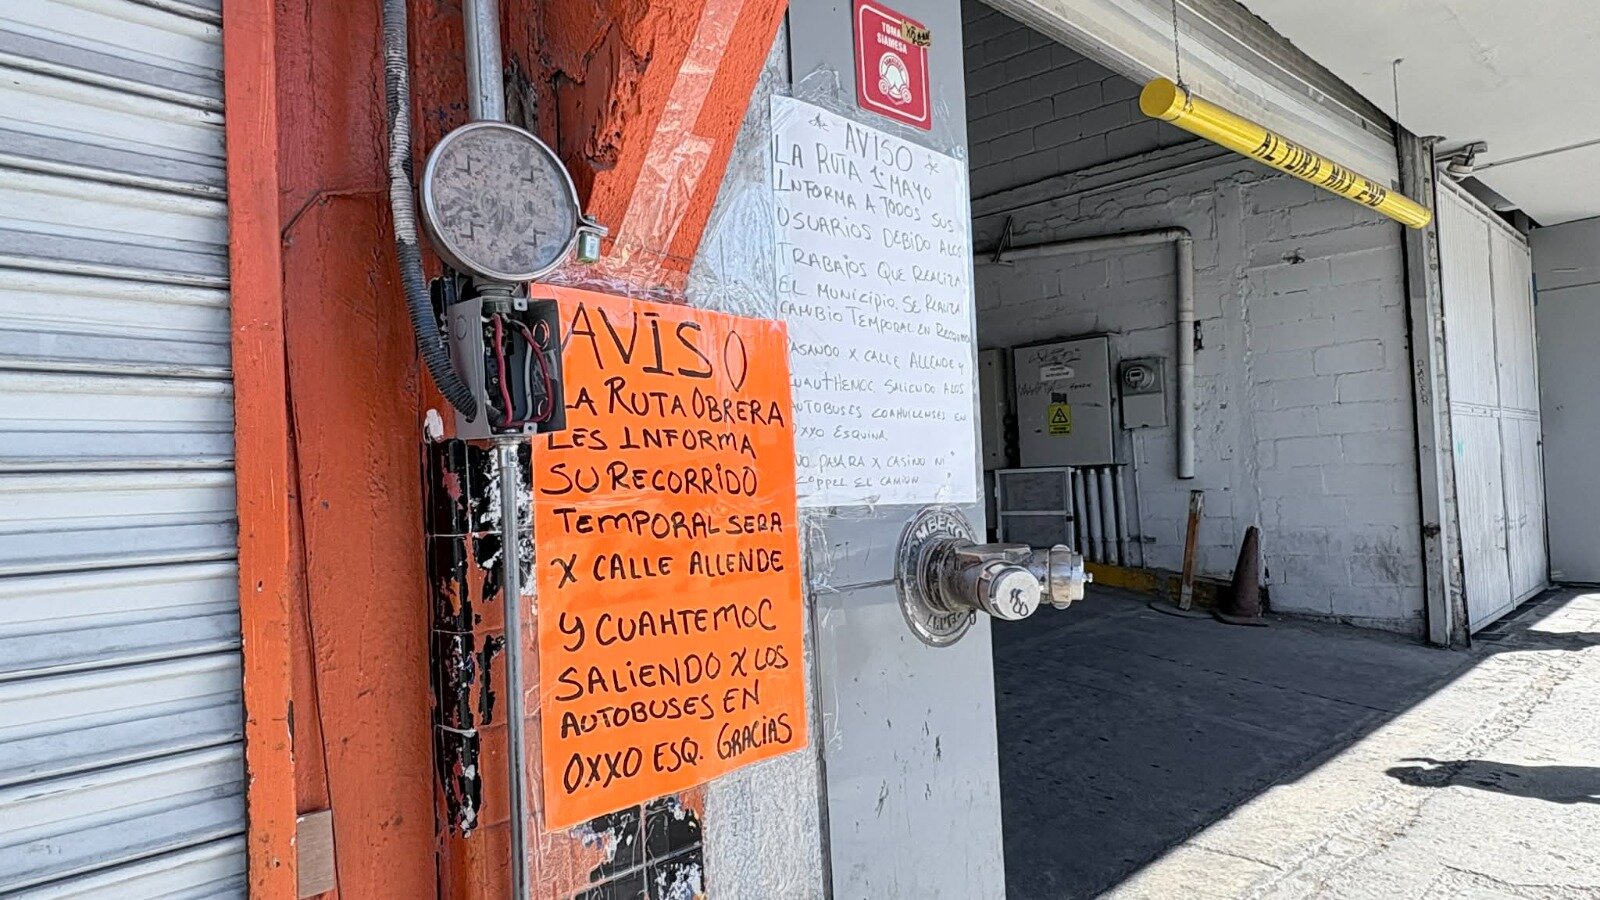 AVISO
LA RUTA OBRERA
LES INFORMA
SU RECORRIDO
TEMPORAL SERA
X CALLE ALLENDE
Y CUAHTEMOC
SALIENDO X LOS
AUTOBUSES EN
OXXO ESQ. GRACIAS
AVISO
LA RUTA 1º MAYO
INFORMA A TODOS SUS
USUARIOS DEBIDO A LOS
TRABAJOS QUE REALIZA
EL MUNICIPIO. SE REALIZA
CAMBIO TEMPORAL EN
PASANDO X CALLE ALLENDE Y
CUAUTHEMOC SALIENDO A LOS
AUTOBUSES COAHUILENSES EN
OXXO ESQUINA
NO PASARA X CASINO NI
COPPEL EL CAMION
TOMA
SIAMESA
BOMBEROS
ALTURA MAX 2.40